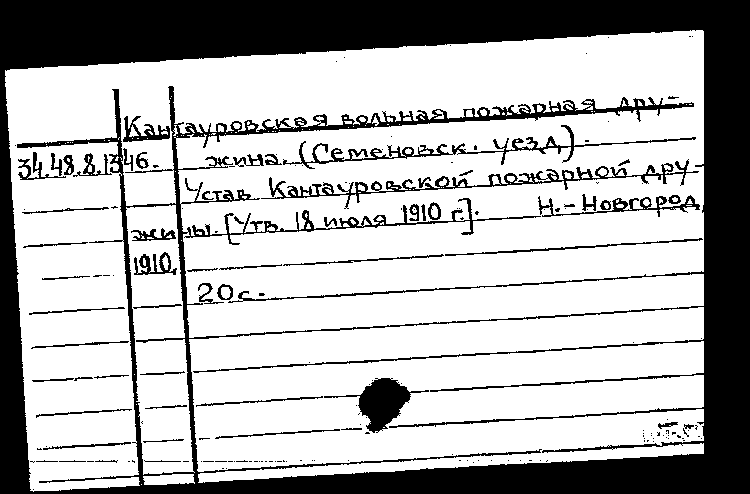 Кантауровская вольная пожарная дру-
34.48.8.1346. жина. (Семеновск. уезд).
Устав Кантауровской пожарной дру-
жины. [Утв. 18 июля 1910 г.]. Н.-Новгород,
1910.
20 с.